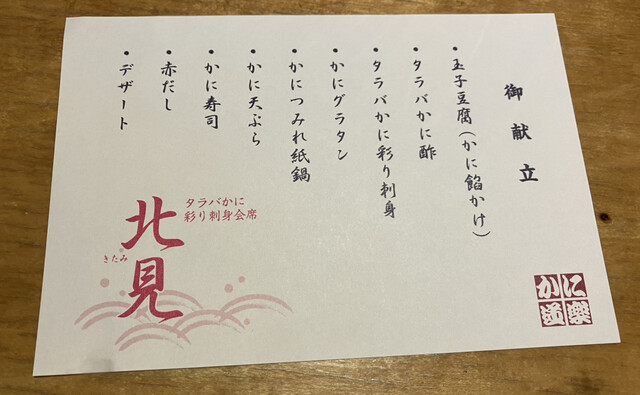 御献立
• 玉子豆腐(かに餡かけ)
• タラバかに酢
• タラバかに彩り刺身
• かにグラタン
• かにつみれ紙鍋
• かに天ぷら
• かに寿司
• 赤だし
• デザート
タラバかに
彩り刺身会席
北見
きたみ
かに
道楽